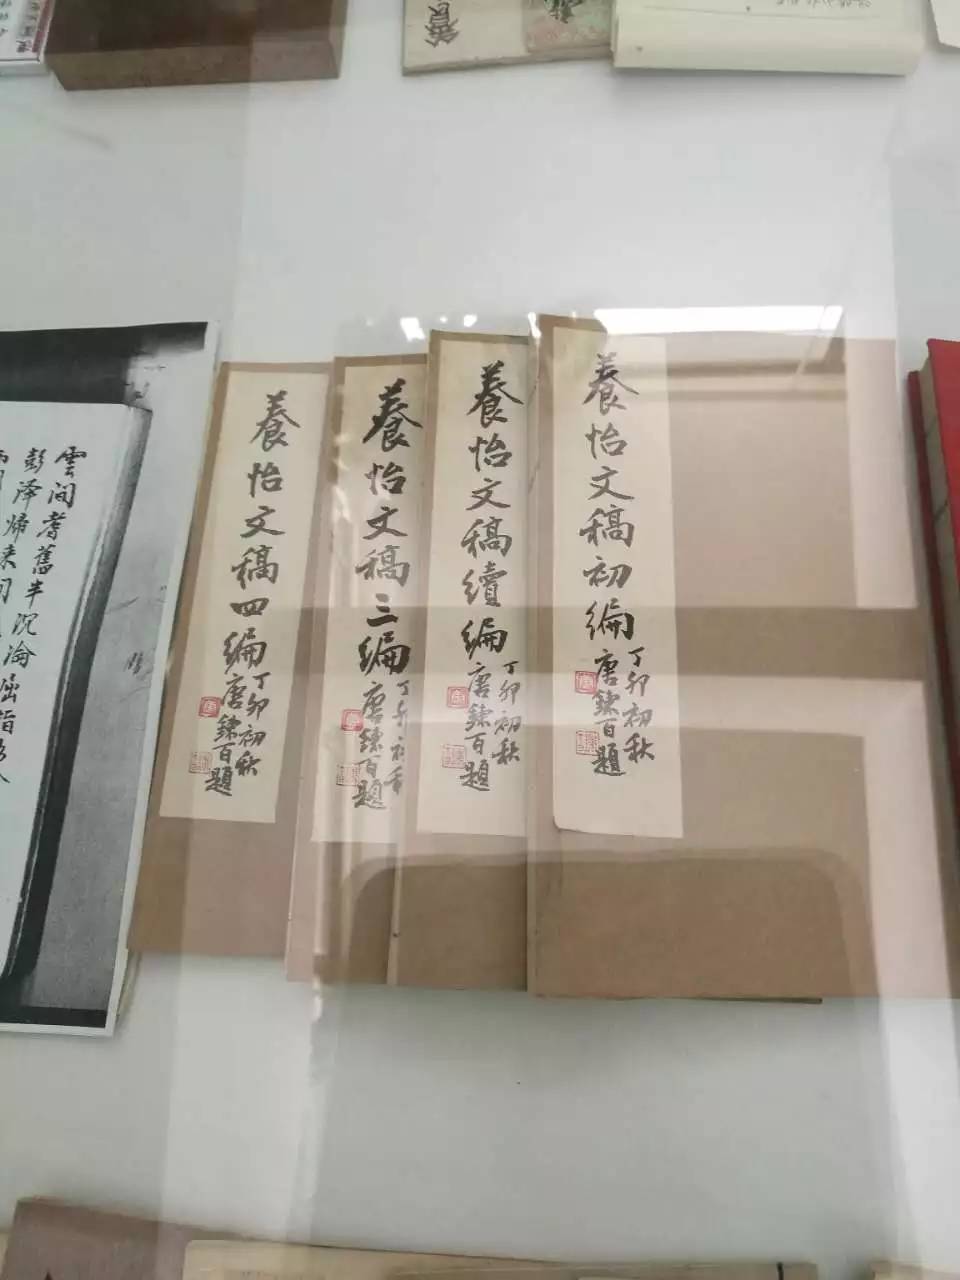 養怡文稿初編
丁卯初秋
唐鍊百題
養怡文稿續編
丁卯初秋
唐鍊百題
養怡文稿三編
丁卯初秋
唐鍊百題
養怡文稿四編
丁卯初秋
唐鍊百題
雲间耆舊半沉淪
彭泽歸来